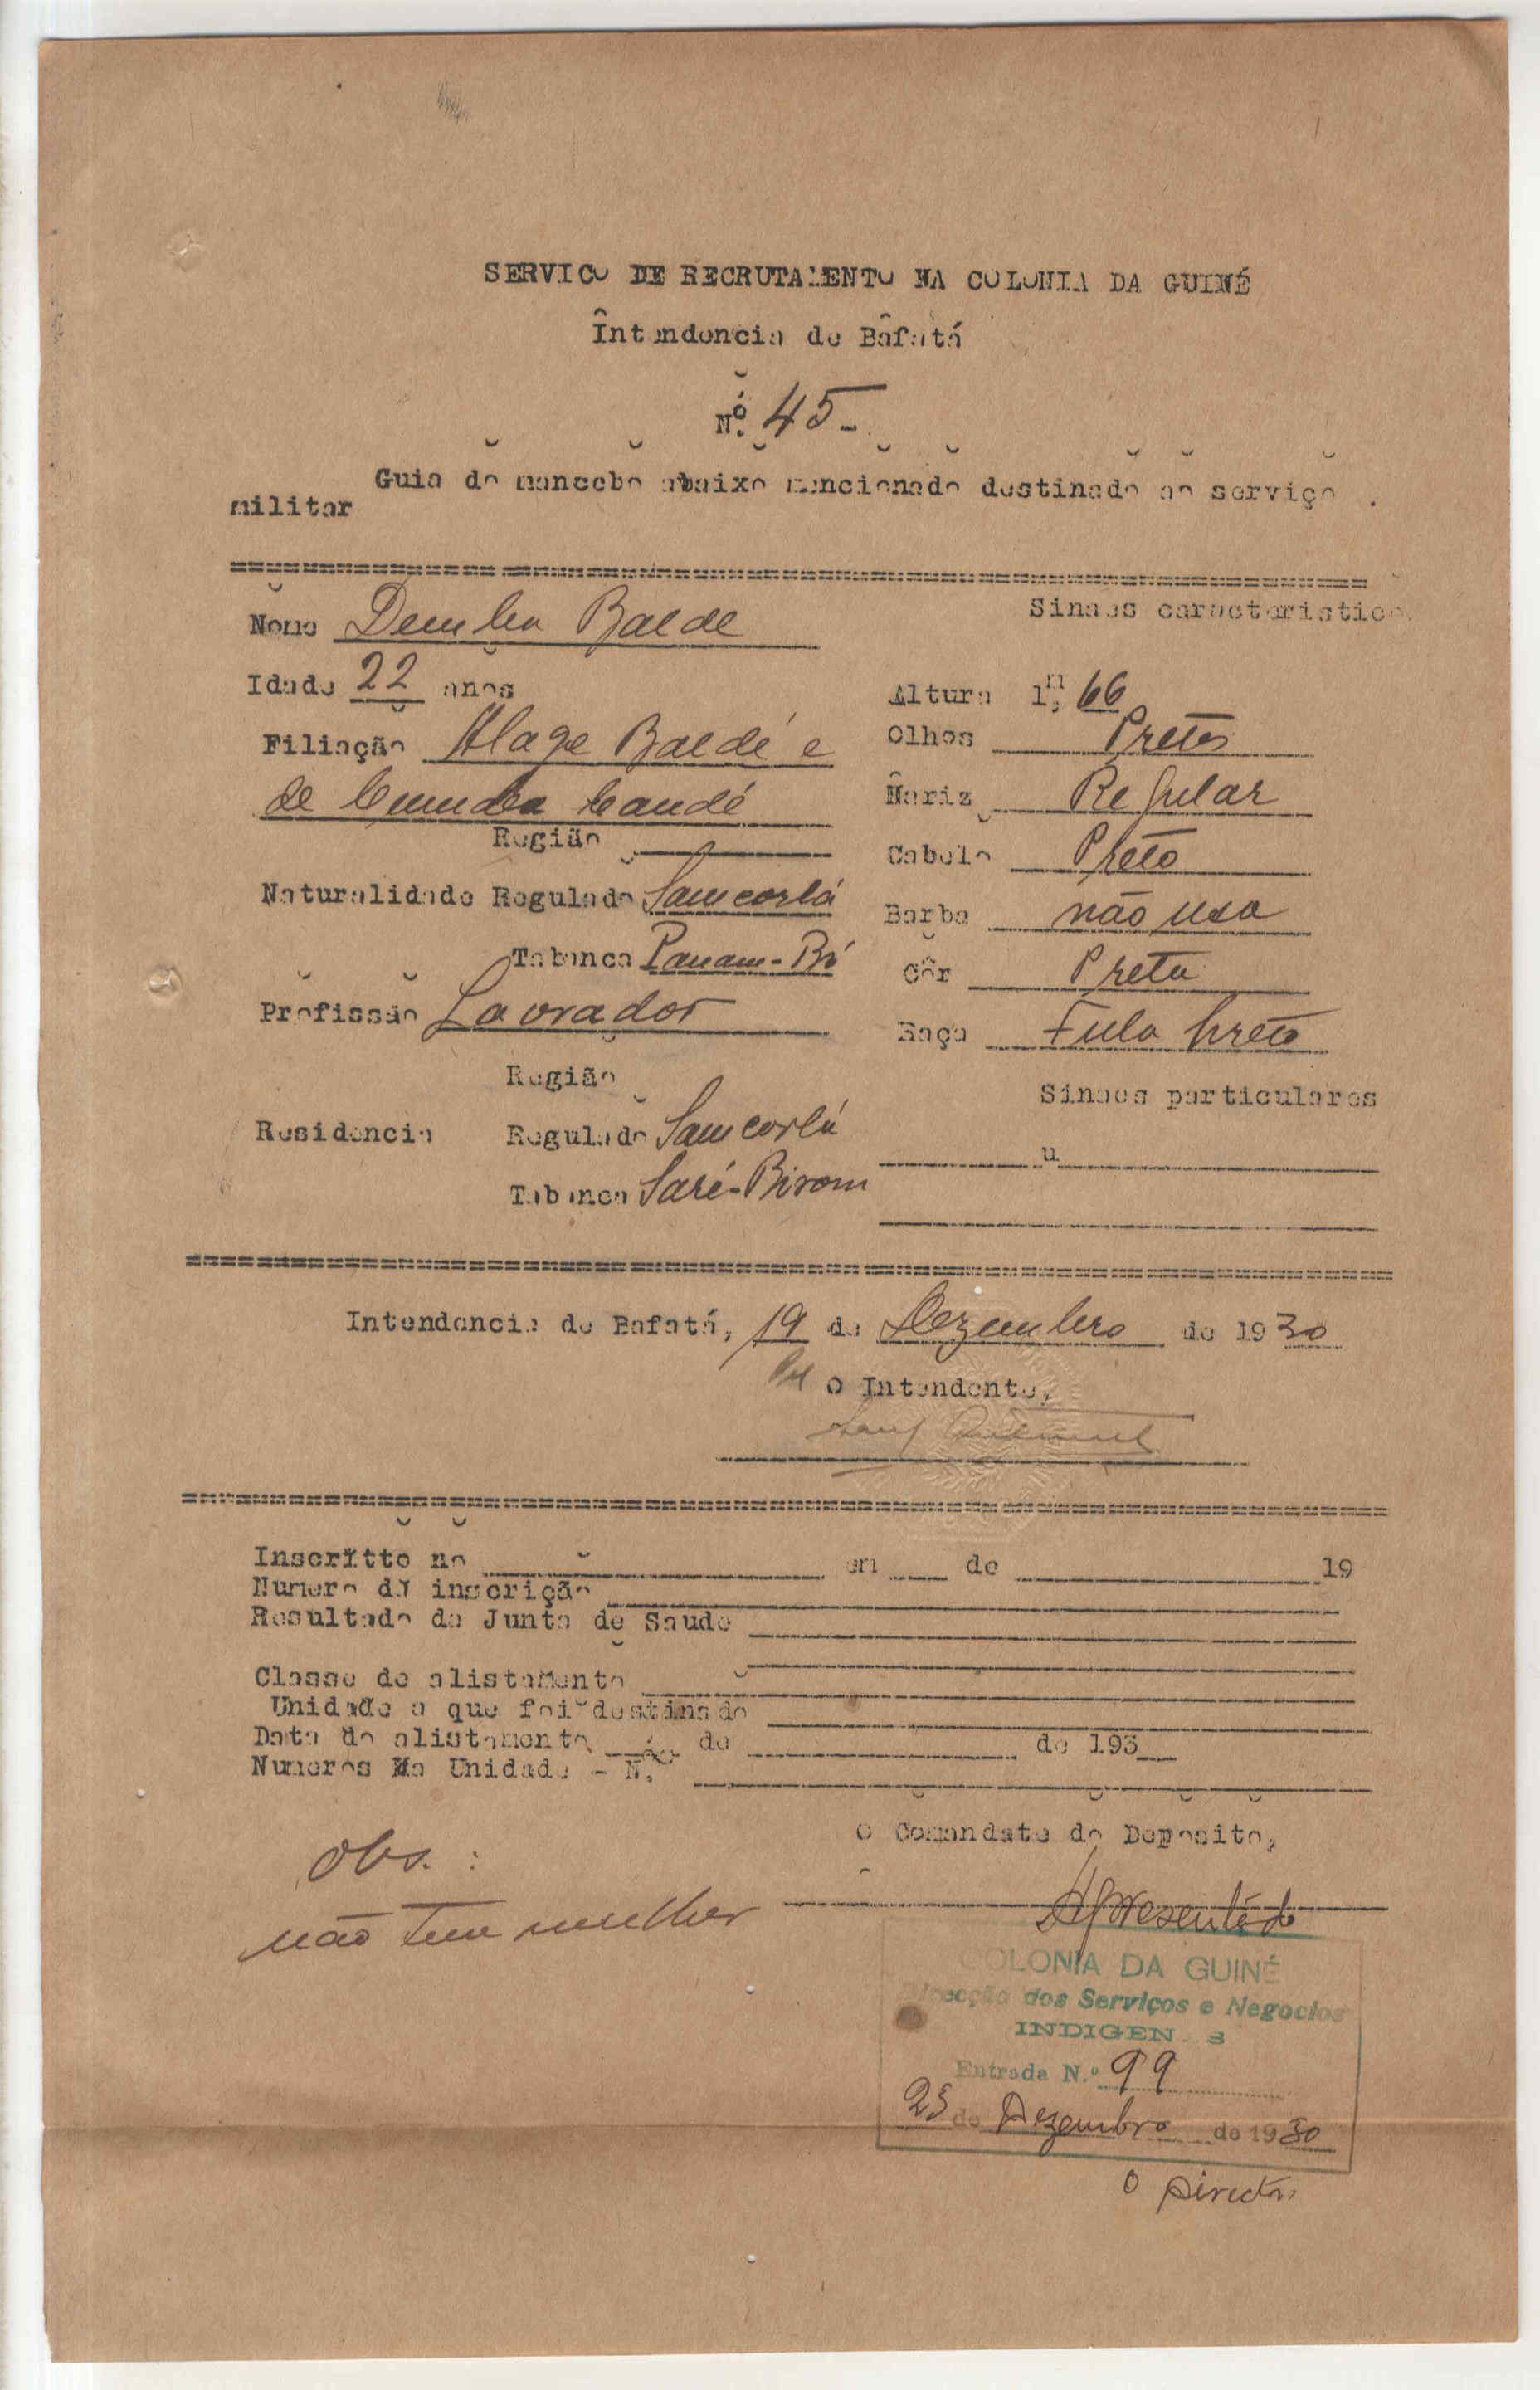 SERVICO DE RECRUTAMENTO NA COLONIA DA GUINÉ
Intendencia de Bafatá
Nº. 45-
Guia do mancebo abaixo mencionado destinado ao serviço
militar
Nome Demba Balde
Sinaes caracteristico
Idade 22 anos
Altura 1,m 66
Filiação Alage Baldé e
Olhos Pretos
de Cumba Candé
Nariz Regular
Região
Cabelo Preto
Naturalidade Regulado Samcorlá
Barba não usa
Tabanca Panam-Bó
Côr Preta
Profissão Lavrador
Raça Fula preto
Região
Sinaes particulares
Residencia Regulado Samcorlá
Tabanca Saré-Birom
Intendencia de Bafatá, 19 de Dezembro de 1930
Pel O Intendente,
Inscritto no em de 19
Numero da inscrição
Resultado da Junta de Saude
Classe de alistamento
Unidade a que foi destinado
Data do alistamento de de 193
Numeros Na Unidade - N.
O Comandate do Deposito,
Obs. :
não tem mulher
Apresentado
COLONIA DA GUINÉ
Direcção dos Serviços e Negocios
INDIGEN S
Entrada N.º 99
23 de Dezembro de 1930
O Director